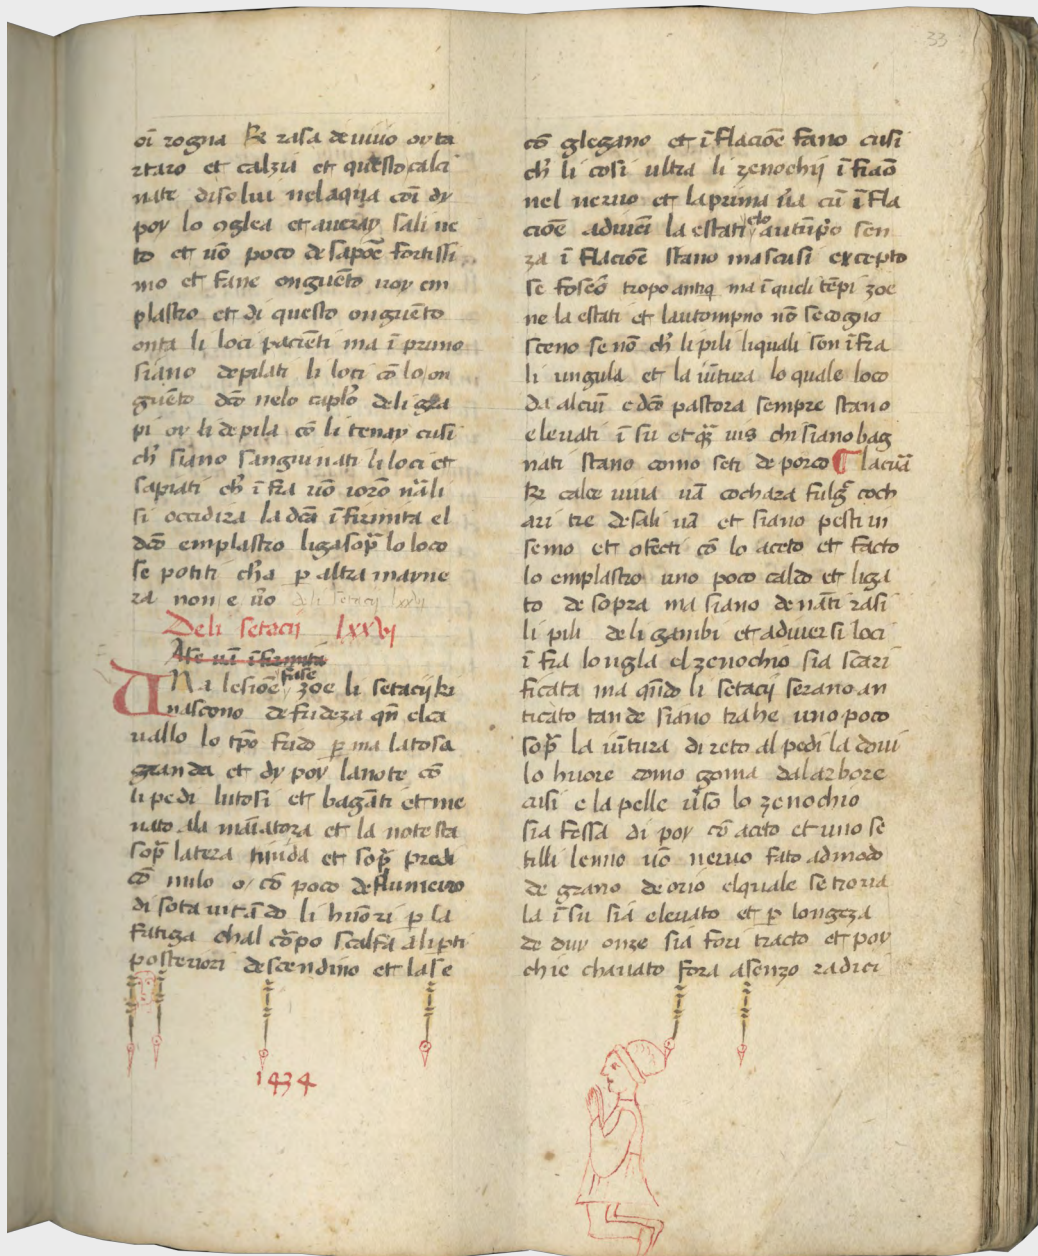 33
oī rogna ꝶ rasa de vivo ov ta
rtaro et calzīa et questo calci
nate disolui nelaqua cōī dy
poy lo oglea et averay sali ne
to et uō poco de sapōe fortissi
mo et fane onguēto uoy em
plastro et di questo onguēto
onta li loci paciēti ma ī primo
siano depilati li loci cō lo on
guēto dcō nelo
pi ov li depila cō li tenay cusi
ch̄ siano sanguinati li loci et
sapiati ch̄ ī fra uō iorō
si occidira la dcā īfirmita el
dcō emplastro liga sop̄ lo loco
se potiti ch̄a p altra mayne
ra non e ūo deli setacij lxxvj
Deli setacij lxxvj
UNa lesiōe fasē zoe li setacij ki
nascono de frideza qn̄ elca
uallo lo tpō frido p ma la tosa
granda et dy poy la note cō
li pedi lutosi et bagnāti et me
nato ala māiatora et la note sta
sop̄ latera nuida et sop̄ predi
cō nulo o cō poco
di sota uitādo li huōri p la
fatiga chal cōpo scalfa ali pēti
posteriori descendino et la se
1434
cō glegano et ī flaciōe fano cusi
ch̄ li cosi ultra li zenochij ī fiaō
nel neruo et la prima ūa cū ī fla
ciōe aduiēi la estati elo autūpō sen
za ī flaciōe stano mascusi excepto
se foseō tropo antiq ma ī queli tēpi zoe
ne la estati et lautompno nō se cogno
sceno se nō ch̄ li pili liquali son ī fra
li ungula et la iūtura lo quale loco
da alcuī e dcō pastora sempre stano
eleuati ī su et qz̄ uis chi siano bag
nati stano como seti de porco ¶ lacuā
ꝶ calce uiua uā cochara fulgī coch
ari tre de sali uā et siano pesti in
semo et cōfecti cō lo aceto et facto
lo emplastro uno poco caldo et liga
to de sopra ma siano de nāti rasi
li pili de li gambi et aduersi loci
ī fra longla el zenochio sia scari
ficata ma qn̄do li setacij serano an
ticato tande siano trahe uno poco
sop̄ la iūtura direto al pedi la doui
lo huore como goma dalarbore
cusi e la pelle ūso lo zenochio
sia fessa di poy cō aceto et uno se
tilli lenno uō neruo fato ad modo
de grano de orio elquale se troua
la ī su sia eleuato et p longeza
de duy onze sia fori tracto et poy
chie chauato fora asenzo radici